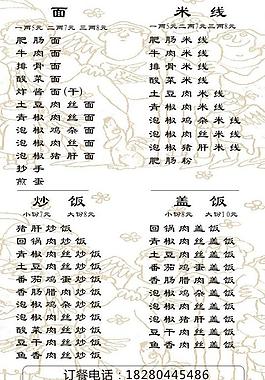 面
一两5元 二两7元 三两8元
肥肠面
牛肉面
排骨面
酸菜面
炸酱面(干)
土豆肉丝面
青椒肉丝面
泡椒鸡杂面
泡椒猪肝面
抄手
煎蛋
米线
一两5元 二两7元 三两8元
肥肠米线
牛肉米线
排骨米线
酸菜米线
土豆肉丝米线
青椒肉丝米线
泡椒鸡杂米线
泡椒猪肝米线
肥肠粉
炒饭
小份7元 大份8元
猪肝炒饭
回锅肉炒饭
青椒肉丝炒饭
土豆肉丝炒饭
番茄鸡蛋炒饭
香肠腊肉炒饭
泡椒鸡杂炒饭
泡椒肉丝炒饭
酸菜肉丝炒饭
豆干肉丝炒饭
鱼香肉丝炒饭
盖饭
小份8元 大份10元
回锅肉盖饭
青椒肉丝盖饭
土豆肉丝盖饭
番茄鸡蛋盖饭
香肠腊肉盖饭
泡椒鸡杂盖饭
泡椒肉丝盖饭
泡椒猪肝盖饭
豆干肉丝盖饭
鱼香肉丝盖饭
订餐电话：18280445486